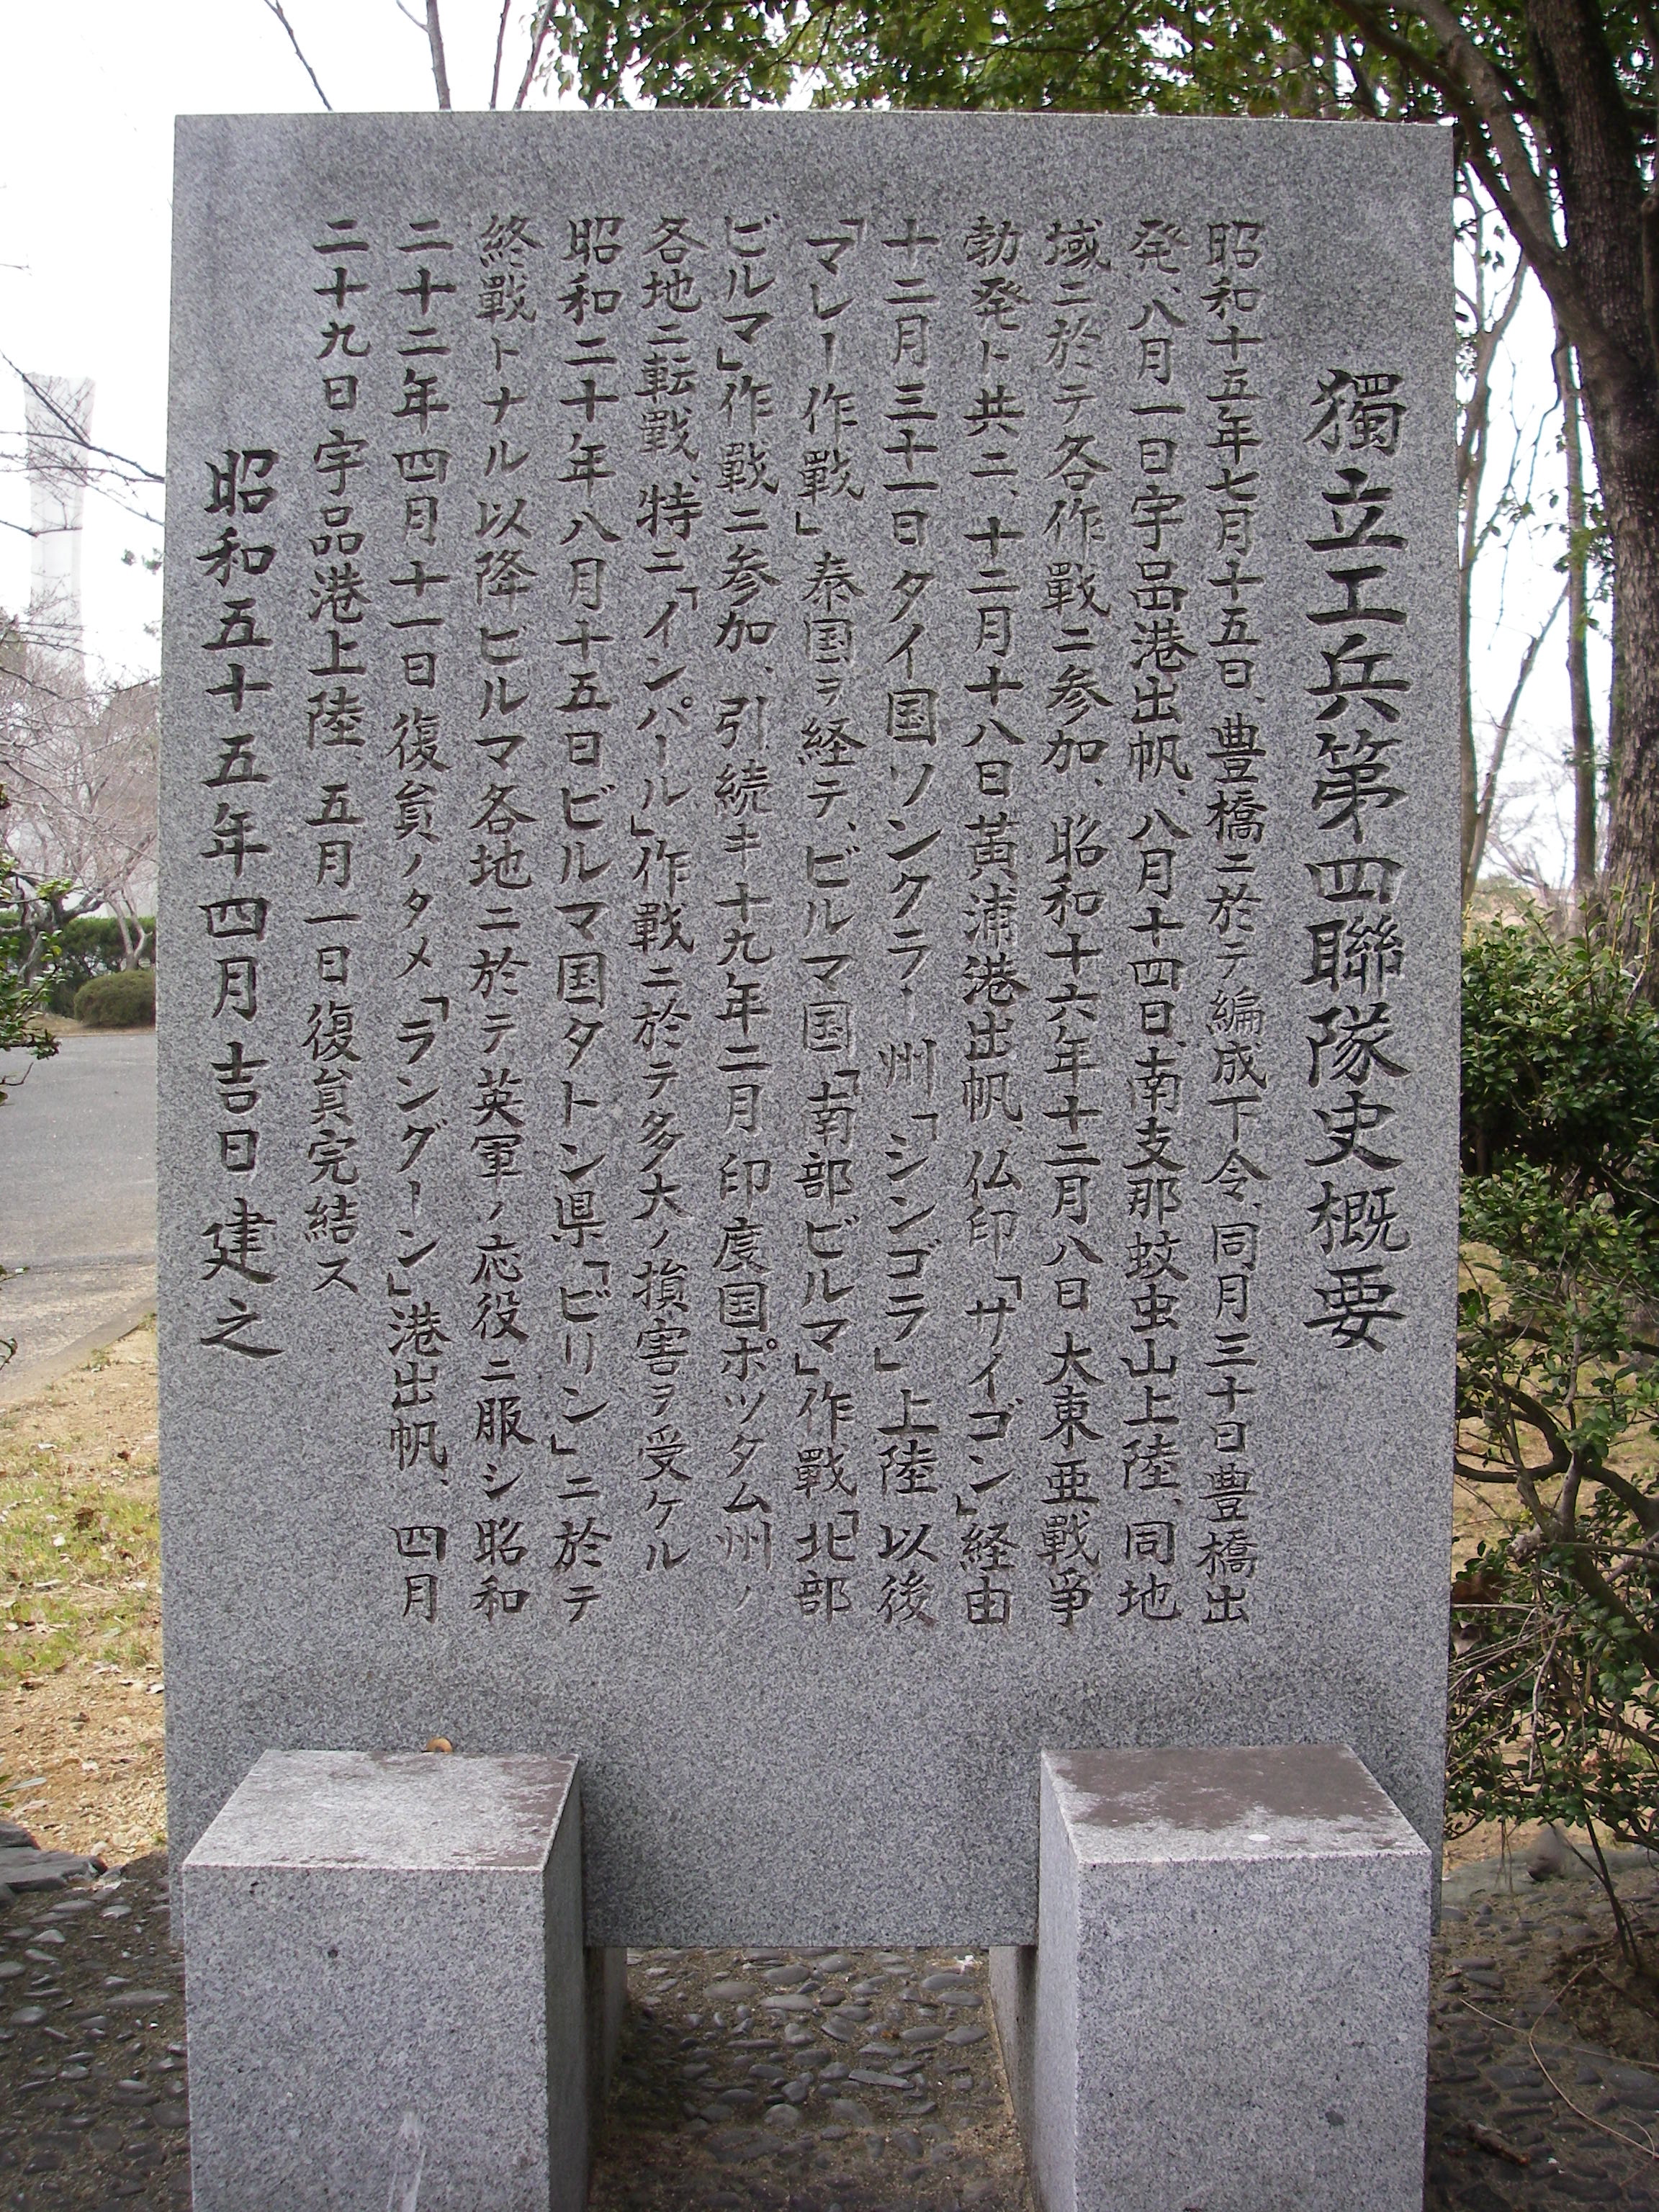 獨立工兵第四聯隊史概要
昭和十五年七月十五日、豊橋ニ於テ編成下令、同月三十日豊橋出
発、八月一日宇品港出帆、八月十四日、南支那蚊虫山上陸、同地
域ニ於テ各作戰ニ参加、昭和十六年十二月八日大東亜戰争
勃発ト共ニ、十二月十八日黃浦港出帆、仏印「サイゴン」経由
十二月三十一日タイ国ソンクラー州「シンゴラ」上陸以後
「マレー作戰」泰国ヲ経テ、ビルマ国「南部ビルマ」作戰「北部
ビルマ」作戰ニ参加、引続キ十九年二月印度国ポツタム州ノ
各地ニ転戰、特ニ「インパール」作戰ニ於テ多大ノ損害ヲ受ケル
昭和二十年八月十五日ビルマ国タトン県「ビリン」ニ於テ
終戰トナル以降ビルマ各地ニ於テ英軍ノ応役ニ服シ昭和
二十二年四月十一日復員ノタメ「ラングーン」港出帆、四月
二十九日宇品港上陸、五月一日復員完結ス
昭和五十五年四月吉日建之